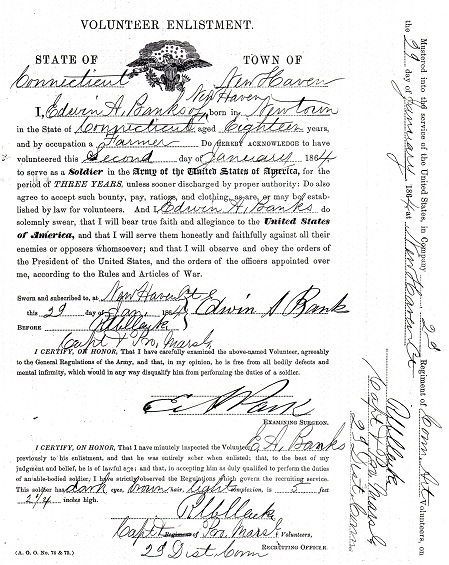 VOLUNTEER ENLISTMENT.
STATE OF TOWN OF
Connecticut New Haven
New Haven
I, Edwin A. Banks of born in Newtown
in the State of Connecticut aged Eighteen years,
and by occupation a Farmer Do HEREBY ACKNOWLEDGE to have
volunteered this Second day of January 1864
to serve as a Soldier in the Army of the United States of America, for the
period of THREE YEARS, unless sooner discharged by proper authority: Do also
agree to accept such bounty, pay, rations, and clothing, as are, or may be, estab-
lished by law for volunteers. And I, Edwin A. Banks do
solemnly swear, that I will bear true faith and allegiance to the United States
of America, and that I will serve them honestly and faithfully against all their
enemies or opposers whomsoever; and that I will observe and obey the orders of
the President of the United States, and the orders of the officers appointed over
me, according to the Rules and Articles of War.
Sworn and subscribed to, at New Haven Ct
this 29 day of Jan. 1864 Edwin A Bank
BEFORE
Capt & Pro. Marsh
I CERTIFY, ON HONOR, That I have carefully examined the above-named Volunteer, agreeably
to the General Regulations of the Army, and that, in my opinion, he is free from all bodily defects and
mental infirmity, which would in any way disqualify him from performing the duties of a soldier.
EXAMINING SURGEON.
I CERTIFY, ON HONOR, That I have minutely inspected the Volunteer, E. A. Banks
previously to his enlistment, and that he was entirely sober when enlisted; that, to the best of my
judgment and belief, he is of lawful age; and that, in accepting him as duly qualified to perform the duties
of an able-bodied soldier, I have strictly observed the Regulations which govern the recruiting service.
This soldier has dark eyes, brown hair, light complexion, is 5 feet
2 1/2 inches high.
Capt & Regiment of Pro. Marsh Volunteers,
2d Dist Conn RECRUITING OFFICER.
(A. G. O. No. 74 & 75.)
Mustered into the service of the United States, in Company 2d Regiment of Conn Art Volunteers, on
the 29 day of January 1864 at New Haven Ct
Capt & Pro Marsh
2d Dist Conn